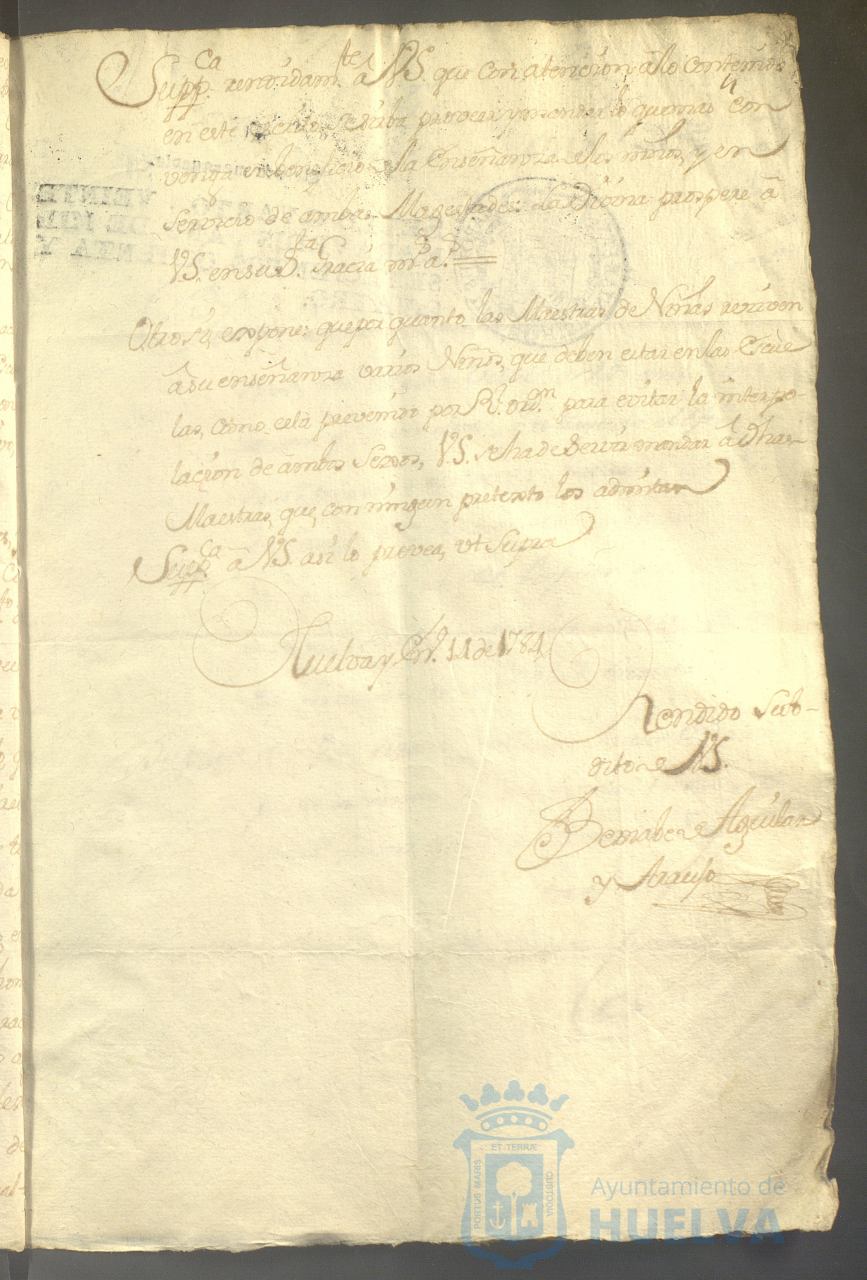 Supp.ca rendidam.te â VS. que con atencion âlo contenido
en este escrito, se sirba proveer, y mandar lo que mas con
venga en beneficio de la Enseñanza de los niños, y en
servicio de ambas Magestades: La Divina prospere â
VS. en su D.na Gracia m.s a.s
Otro si, expone: que por quanto las Maestras de Niñas reciven
â su enseñanza varios Niños, que deben estar en las Escue
las, como està prevenido por R.l ord.n para evitar la interpo-
laçion de ambos Sexos, VS. se ha de servir mandar â dhas
Maestras, que, con ningun pretexto los admitan
Supp.ca â VS. asi lo provea, ut Supra
Huelva y En.o 11 de 1784
Rendido Sub-
dito de VS.
Bernabe de Aguilar
y Araujo
ET TERRÆ
PORTUS MARIS
CUSTODIA
Ayuntamiento de
HUELVA